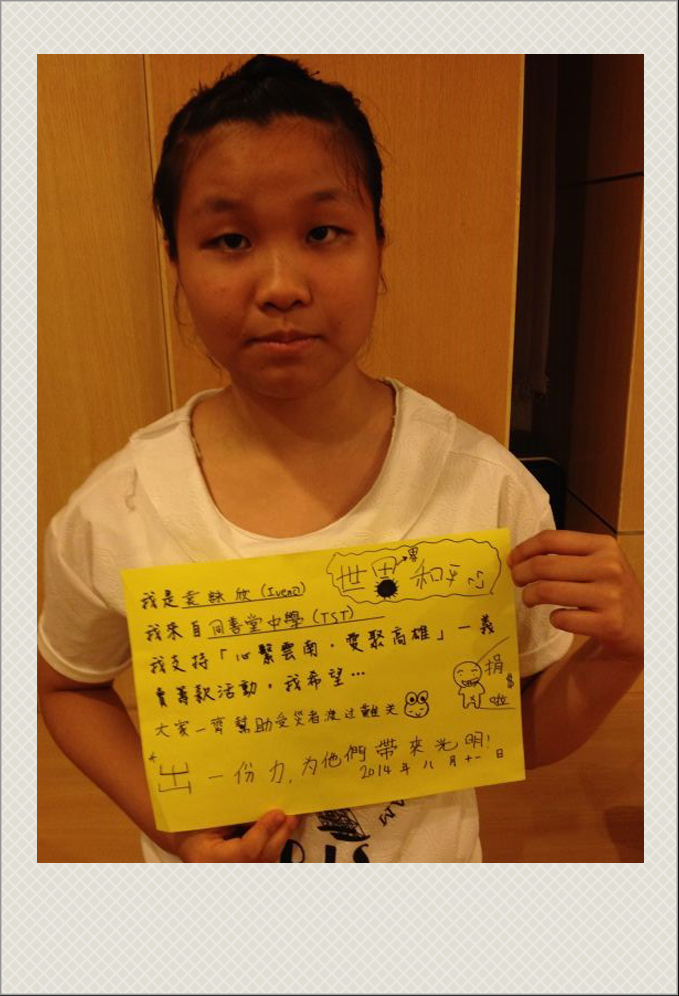 世界和平
我是袁詠欣 (Ivenz)
我來自同善堂中學 (TST)
我支持「心繫雲南，愛聚高雄」一義
賣籌款活動，我希望…
捐$啦
大家一齊幫助受災者渡过難关
出一份力,为他們帶來光明!
2014 年 八 月 十一 日